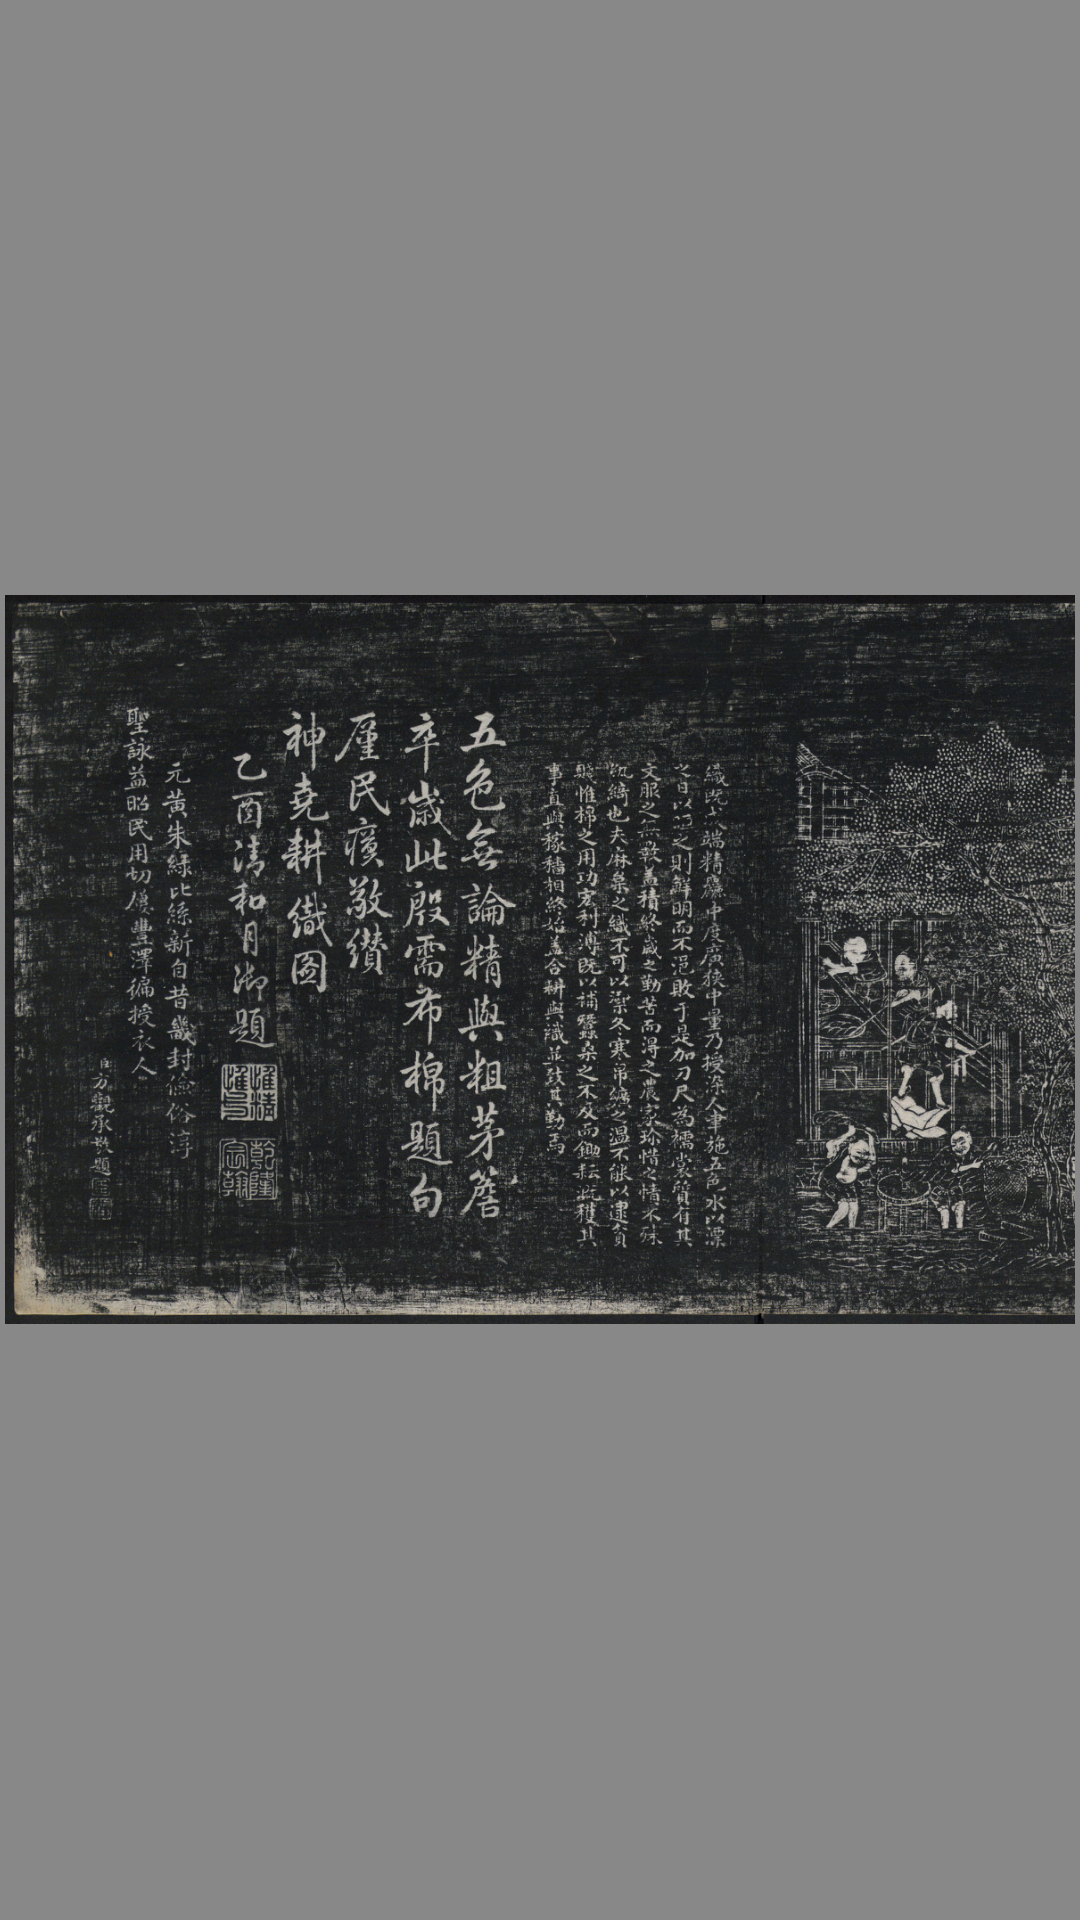 織既成端精麤中度廣狹中量乃授染人聿施五色水以漂
之日以晅之則鮮明而不浥敗于是加刀尺為襦裳質有其
文服之無斁蓋積終歲之勤苦而得之農家珍惜之情不殊
紈綺也夫麻枲之織不可以禦冬寒帛纊之溫不能以逮貧
賤惟棉之用功宏利溥既以補蠶桑之不及而鋤耘溉穫其
事直與稼穡相終始蓋合耕與織並致其勤焉
五色無論精與粗茅簷
卒歲此殷需布棉題句
厪民瘼敬纘
神堯耕織圖
乙酉清和月御題
惟精惟一
乾隆宸翰
元黃朱綠比絲新自昔畿封儉俗淳
聖詠益昭民用切屢豐澤徧授衣人
臣方觀承敬題